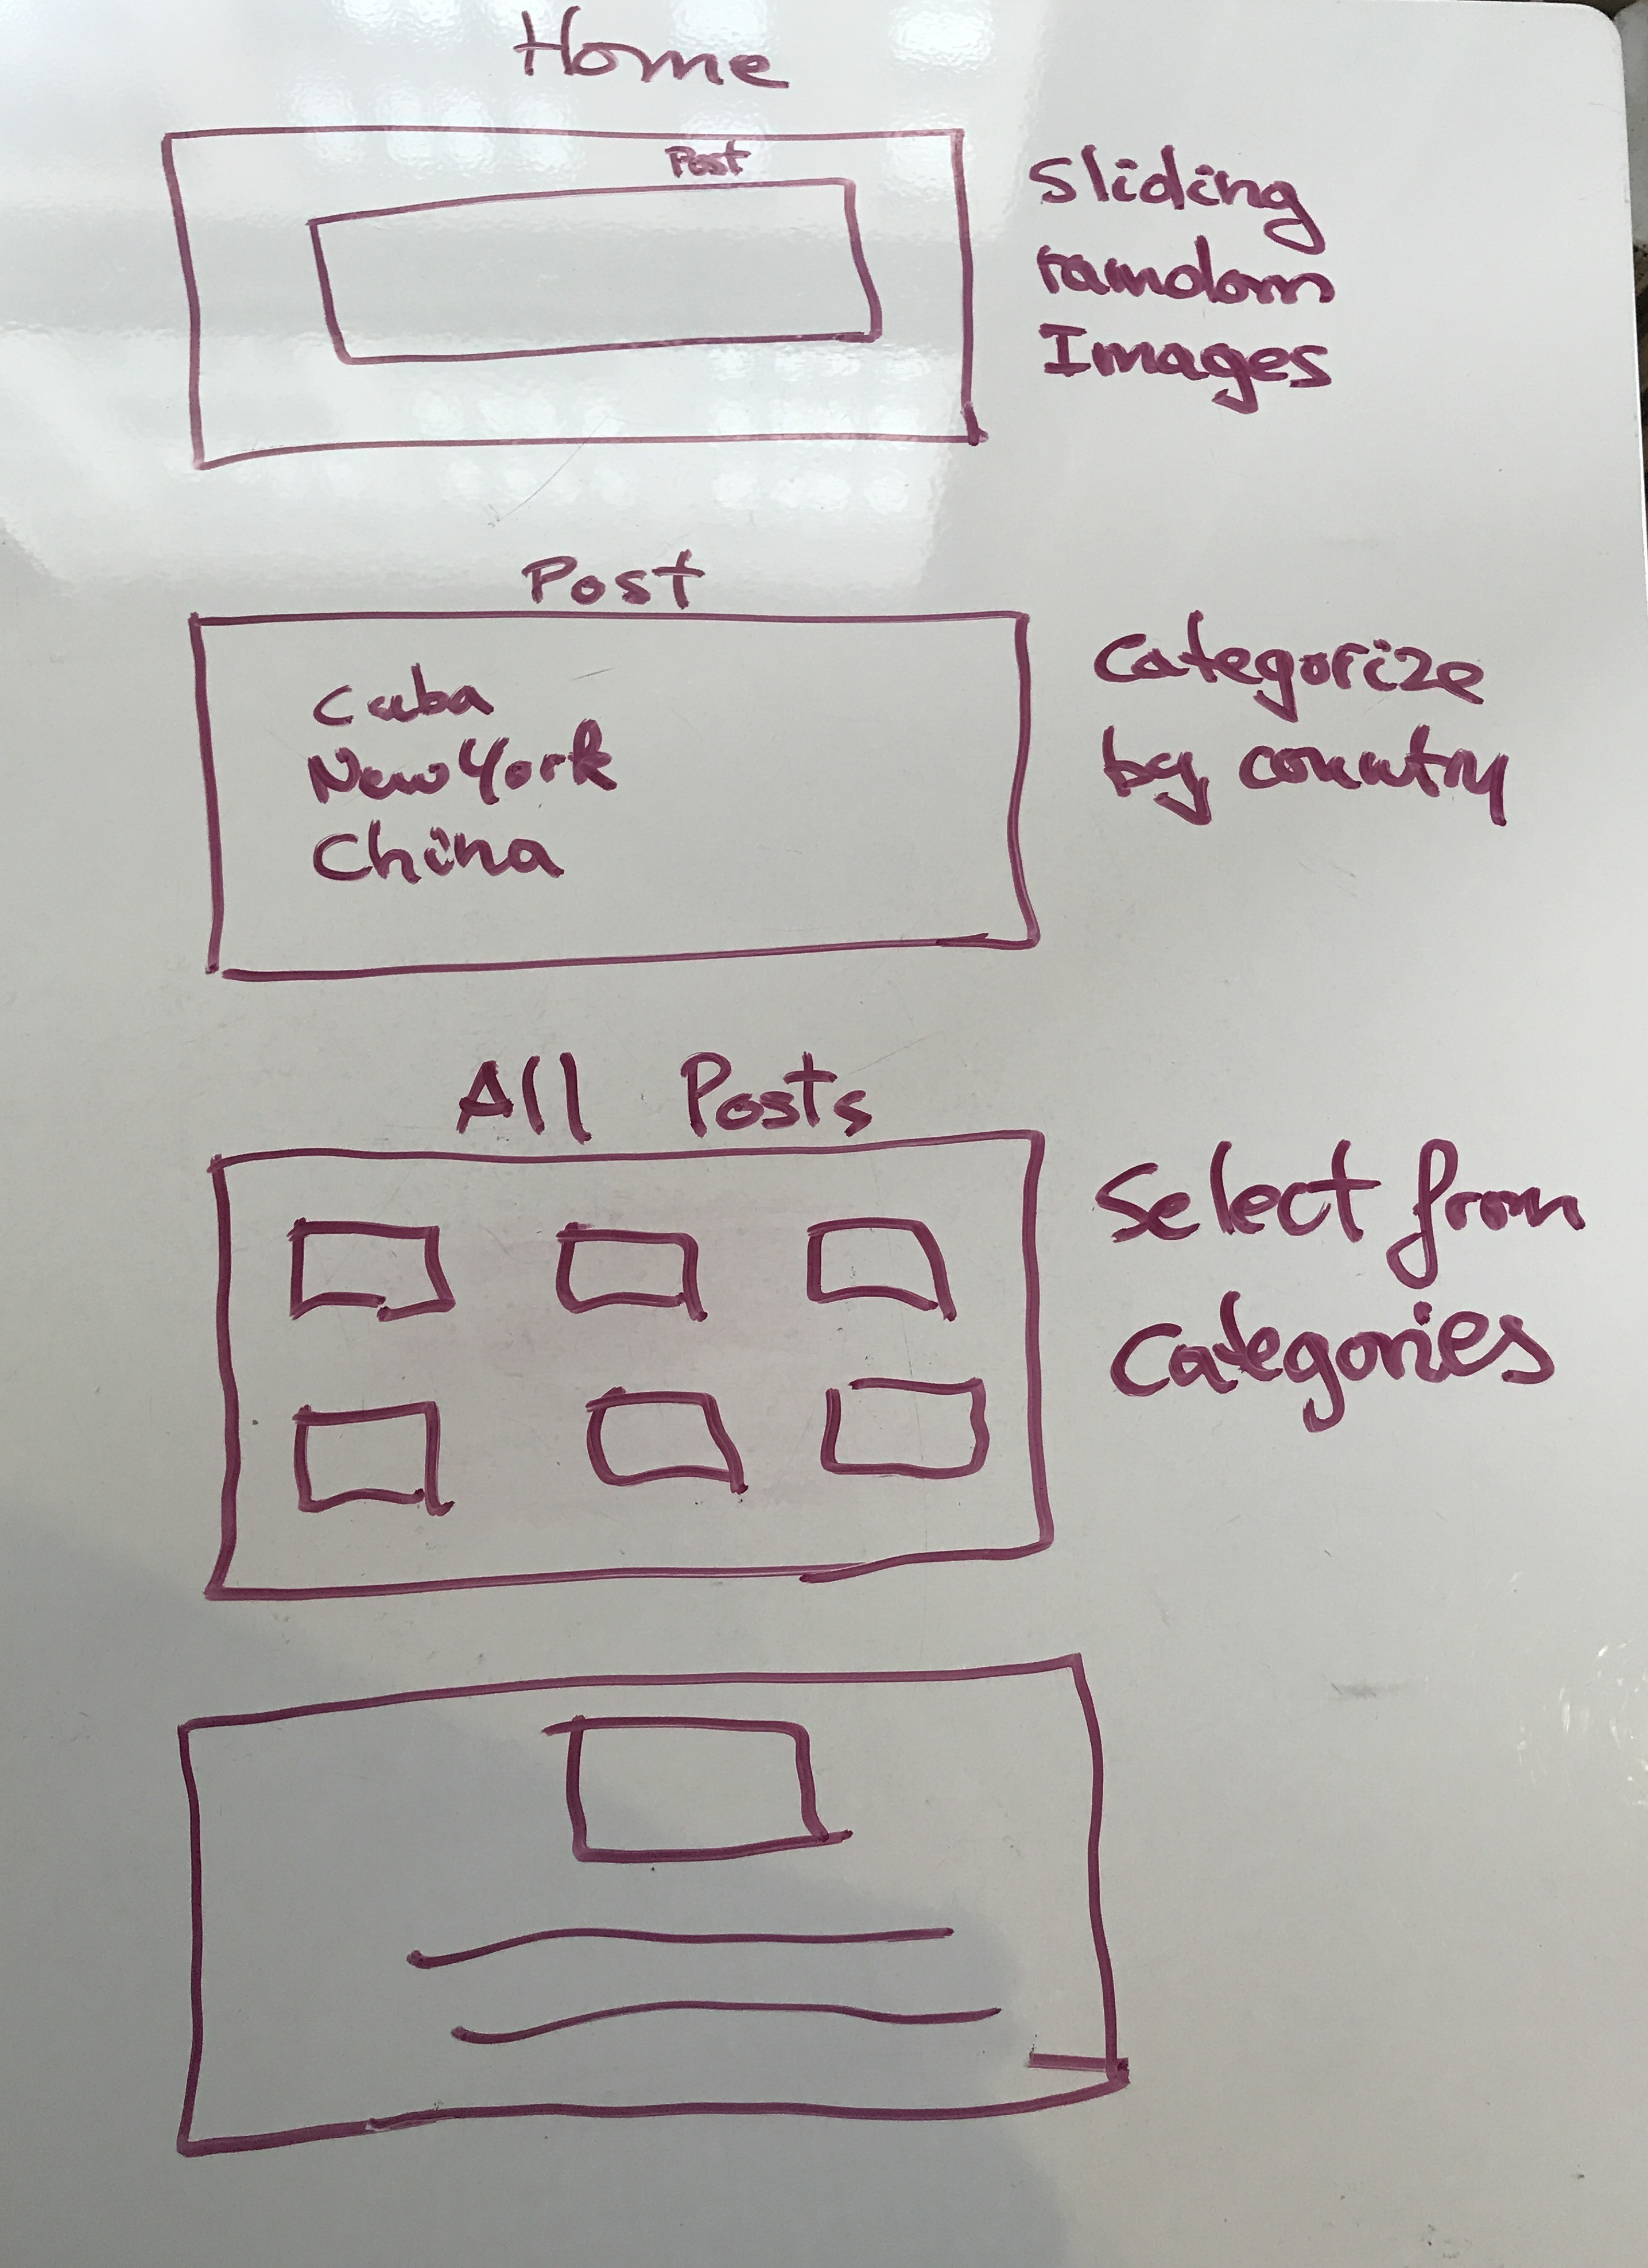 Home
Post
Sliding
random
Images
Post
Cuba
New York
China
Categorize
by country
All Posts
Select from
Categories